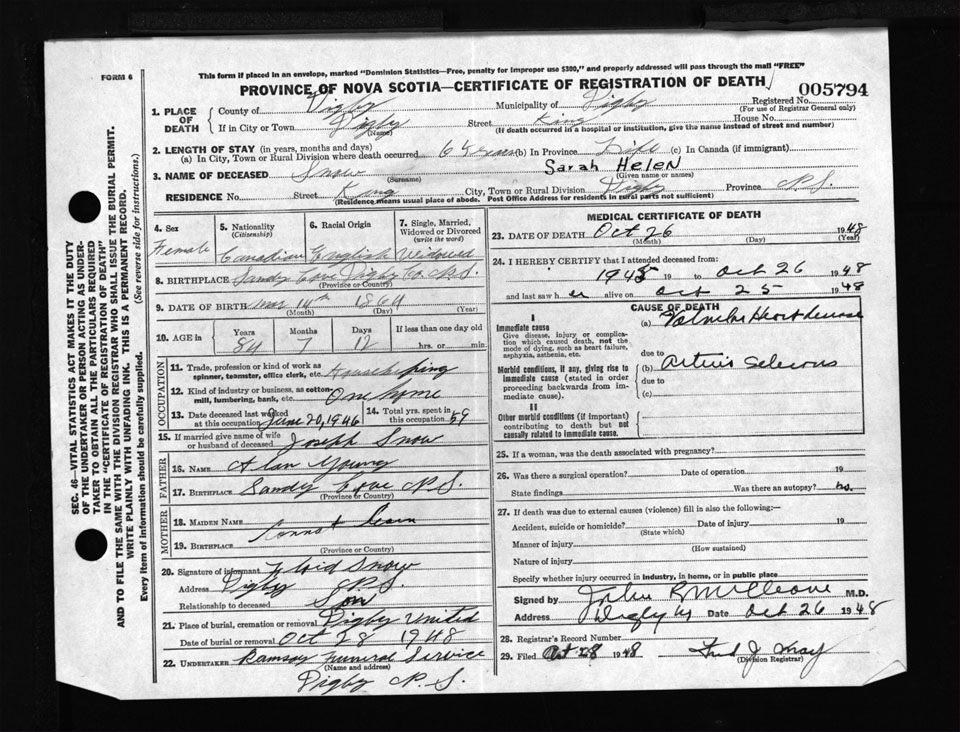 FORM 6
This form if placed in an envelope, marked "Dominion Statistics—Free, penalty for improper use $300," and properly addressed will pass through the mail "FREE"
PROVINCE OF NOVA SCOTIA—CERTIFICATE OF REGISTRATION OF DEATH
005794
1. PLACE OF DEATH
County of Digby Municipality of Digby Registered No.
(For use of Registrar General only)
If in City or Town Digby Street King House No.
(Name) (If death occurred in a hospital or institution, give the name instead of street and number)
2. LENGTH OF STAY (in years, months and days)
(a) In City, Town or Rural Division where death occurred 6 years (b) In Province Life (c) In Canada (if immigrant)
3. NAME OF DECEASED Snow Sarah Helen
(Surname) (Given name or names)
RESIDENCE No. Street King City, Town or Rural Division Digby Province N.S.
(Residence means usual place of abode. Post Office Address for residents in rural parts not sufficient)
4. Sex
Female
5. Nationality
(Citizenship)
Canadian
6. Racial Origin
English
7. Single, Married, Widowed or Divorced
(write the word)
Widowed
8. BIRTHPLACE Sandy Cove Digby Co. N.S.
(Province or Country)
9. DATE OF BIRTH Mar 14th 1864
(Month) (Day) (Year)
10. AGE in
Years Months Days If less than one day old
84 7 12 hrs. or min.
OCCUPATION
11. Trade, profession or kind of work as spinner, teamster, office clerk, etc. Housekeeping
12. Kind of industry or business, as cotton-mill, lumbering, bank, etc. Own home
13. Date deceased last worked at this occupation June 20, 1946
14. Total yrs. spent in this occupation 59
15. If married give name of wife or husband of deceased Joseph Snow
FATHER
16. NAME Alan Young
17. BIRTHPLACE Sandy Cove N.S.
(Province or Country)
MOTHER
18. MAIDEN NAME
Cannot learn
19. BIRTHPLACE
(Province or Country)
20. Signature of informant Floid Snow
Address Digby N.S.
Relationship to deceased Son
21. Place of burial, cremation or removal Digby United
Date of burial or removal Oct 28 1948
22. UNDERTAKER Ramsay Funeral Service
(Name and address)
Digby N.S.
MEDICAL CERTIFICATE OF DEATH
23. DATE OF DEATH Oct 26 1948
(Month) (Day) (Year)
24. I HEREBY CERTIFY that I attended deceased from:
1945 19 to Oct 26 1948
and last saw h er alive on Oct 25 1948
CAUSE OF DEATH
I
Immediate cause
Give disease, injury or complication which caused death, not the mode of dying, such as heart failure, asphyxia, asthenia, etc.
(a) Valvular Heart disease
due to
Morbid conditions, if any, giving rise to immediate cause (stated in order proceeding backwards from immediate cause).
(b) Arterio Sclerosis
due to
(c)
II
Other morbid conditions (if important) contributing to death but not causally related to immediate cause.
25. If a woman, was the death associated with pregnancy?
26. Was there a surgical operation? Date of operation 19
State findings Was there an autopsy? No.
27. If death was due to external causes (violence) fill in also the following:—
Accident, suicide or homicide? Date of injury 19
(State which)
Manner of injury
(How sustained)
Nature of injury
Specify whether injury occurred in industry, in home, or in public place
Signed by John R McCleave M.D.
Address Digby NS Date Oct 26 1948
28. Registrar's Record Number
29. Filed Oct 28 1948 Fred J May
(Division Registrar)
SEC. 46—VITAL STATISTICS ACT MAKES IT THE DUTY
OF THE UNDERTAKER OR PERSON ACTING AS UNDER-
TAKER TO OBTAIN ALL THE PARTICULARS REQUIRED
IN THE "CERTIFICATE OF REGISTRATION OF DEATH"
AND TO FILE THE SAME WITH THE DIVISION REGISTRAR WHO SHALL ISSUE THE BURIAL PERMIT.
WRITE PLAINLY WITH UNFADING INK. THIS IS A PERMANENT RECORD.
Every item of information should be carefully supplied. (See reverse side for instructions.)